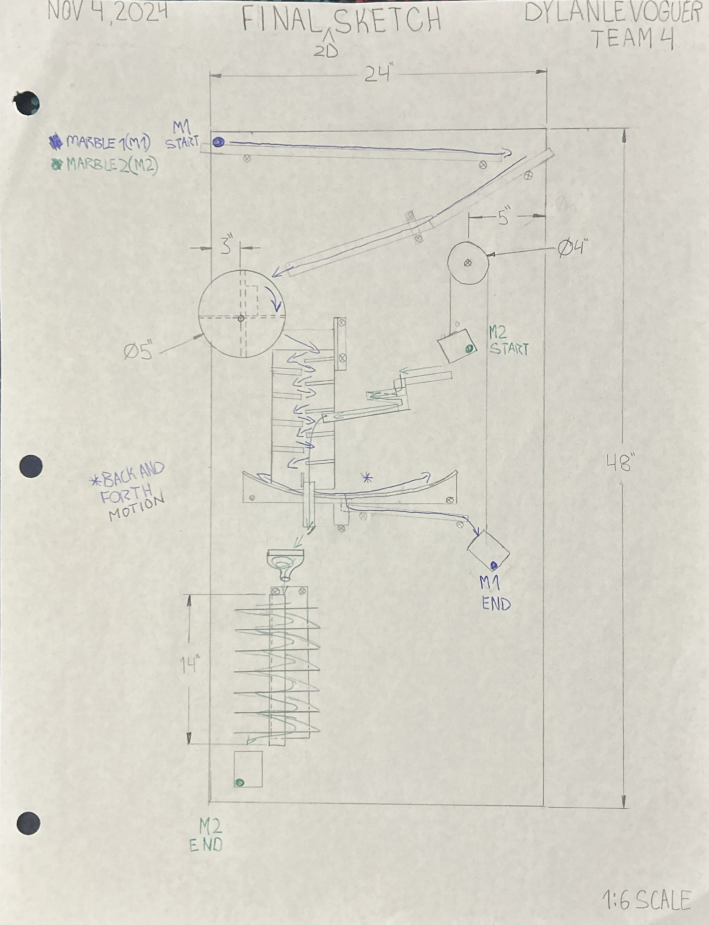 NOV 4,2024
FINAL SKETCH
2D
DYLAN LEVOGUER
TEAM 4
24"
MARBLE 1(M1)
MARBLE 2(M2)
M1
START
5"
3"
Ø4"
M2
START
Ø5"
48"
*BACK AND
FORTH
MOTION
*
M1
END
14"
M2
END
1:6 SCALE